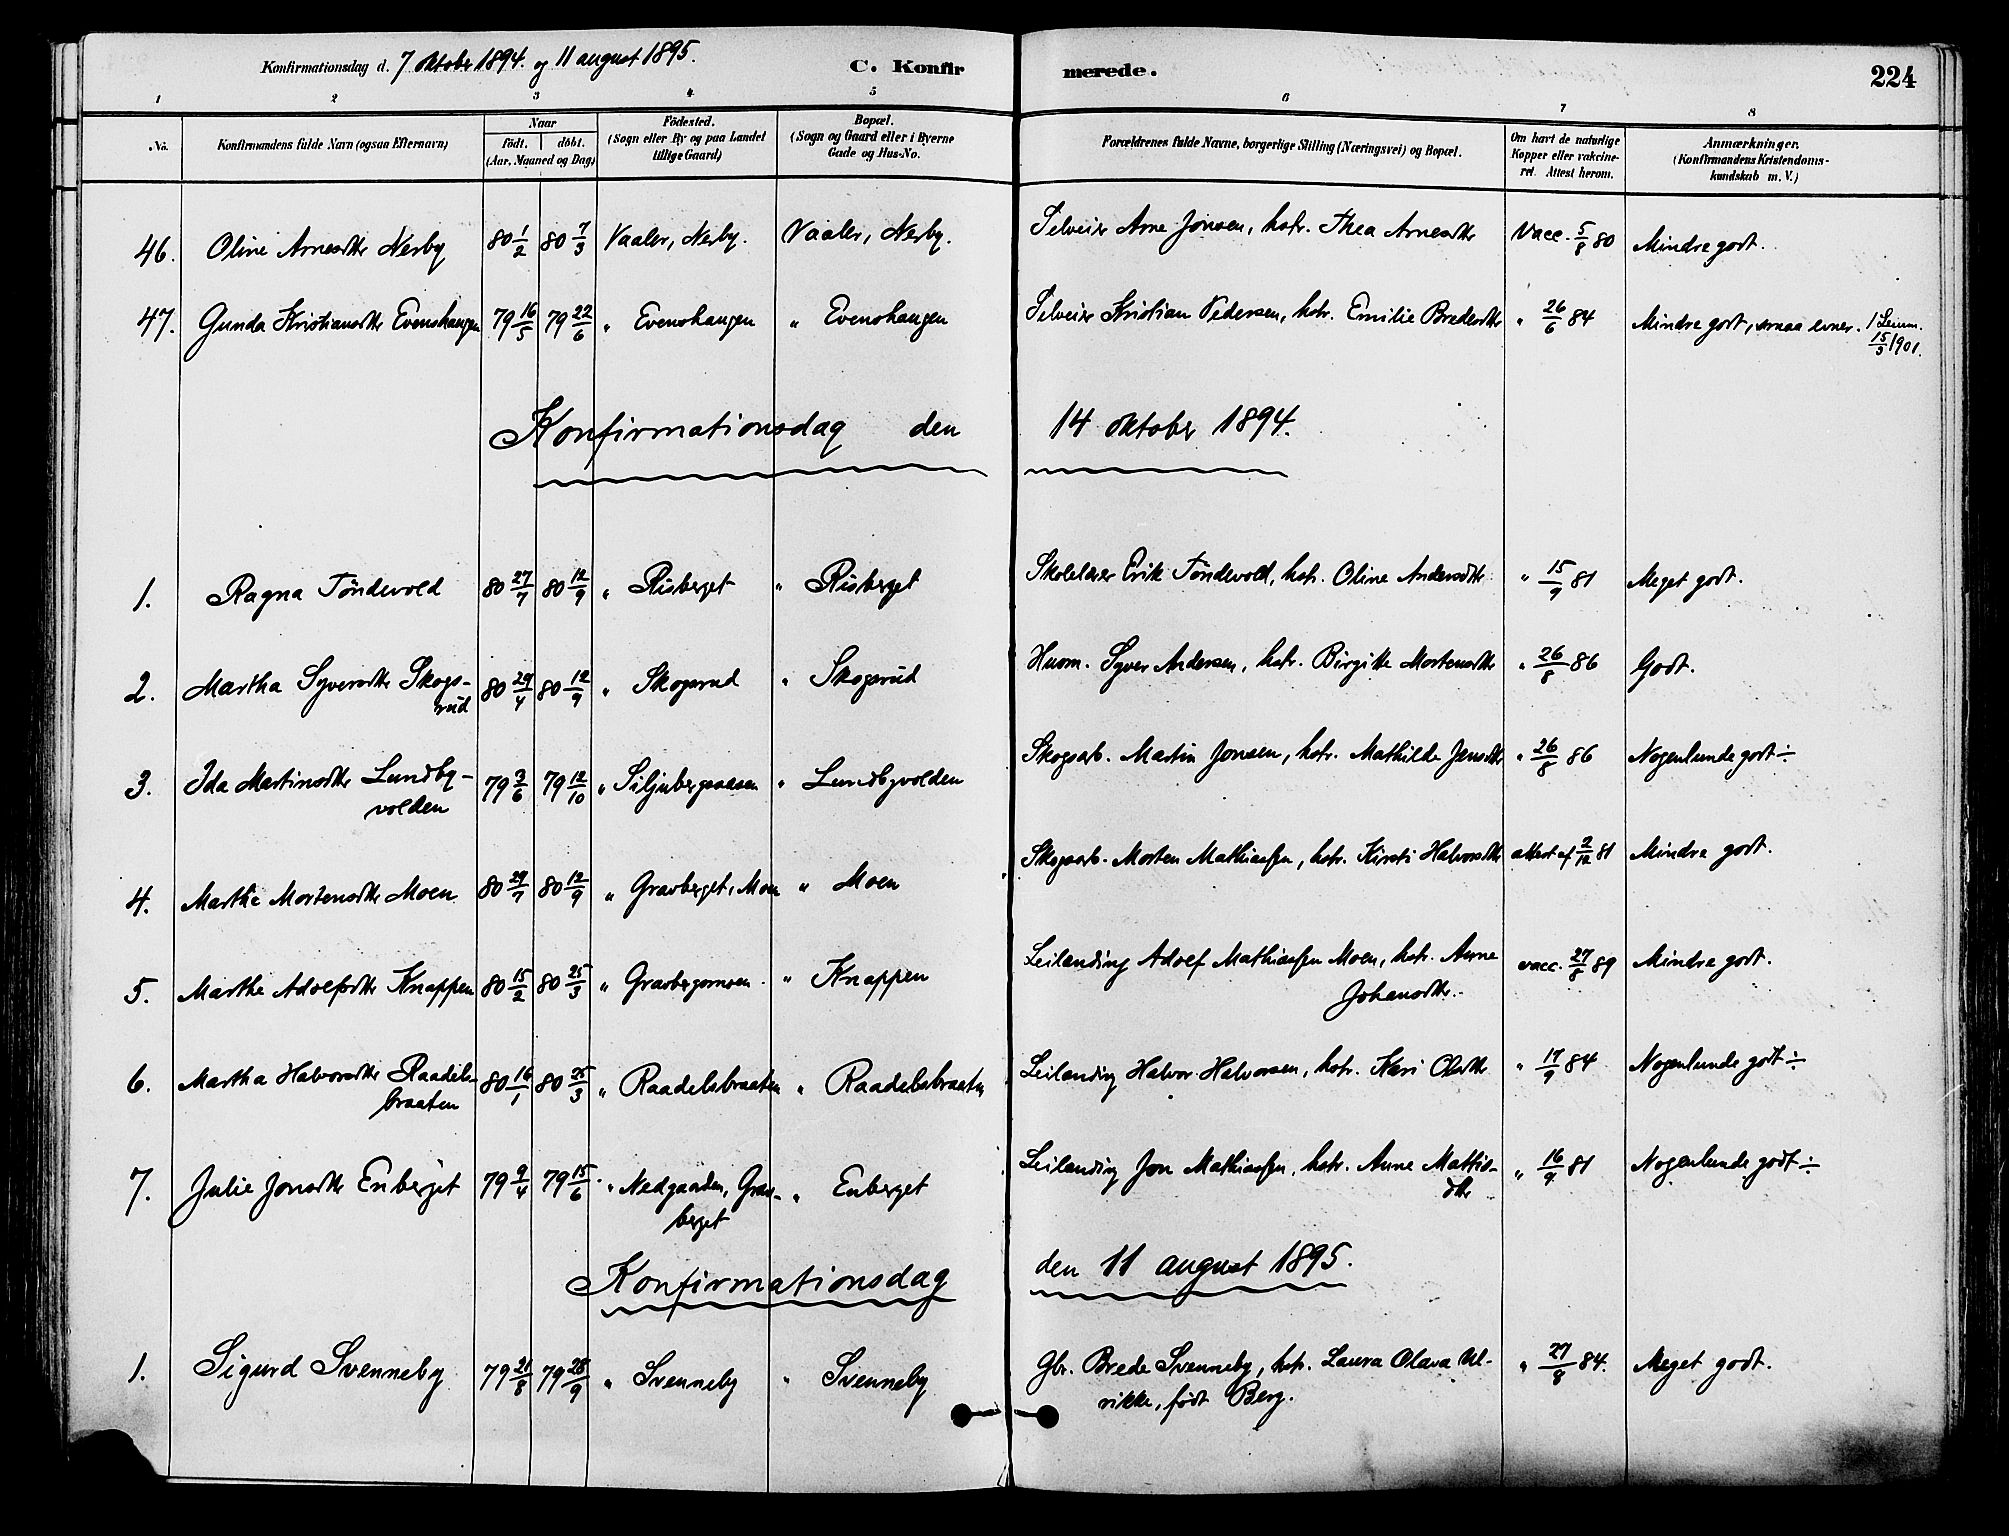 Konfirmationsdag d. 7 oktober 1894. og 11 august 1895.
C. Konfirmerede.
224
1 2 3 4 5 6 7 8
No.
Konfirmandens fulde Navn (ogsaa Efternavn)
Naar
født. døbt.
(Aar, Maaned og Dag)
Fødested.
(Sogn eller By og paa Landet
tillige Gaard)
Bopæl.
(Sogn og Gaard eller i Byerne
Gade og Hus-No.
Forældrenes fulde Navne, borgerlige Stilling (Næringsvei) og Bopæl.
Om havt de naturlige
Kopper eller vakcine-
ret. Attest herom.
Anmærkninger.
(Konfirmandens Kristendoms-
kundskab m. V.)
46. Oline Arnesdtr Nerby 80 1/2 80 7/3 Vaaler, Nerby. Vaaler, Nerby. Selveier Arne Jonsen, hstr. Thea Arnesdtr Vacc. 5/8 80 Mindre godt.
47. Gunda Kristiansdtr Evenshaugen 79 16/5 79 22/6 " Evenshaugen " Evenshaugen Selveier Kristian Pedersen, hstr. Emilie Bredesdtr " 26/6 84 Mindre godt, smaa evner.
15/3 1901.
Konfirmationsdag den 14 oktober 1894.
1. Ragna Töndevold 80 27/7 80 12/9 " Risberget " Risberget Skolelærer Erik Töndevold, hstr. Oline Andersdtr. " 15/9 81 Meget godt.
2. Martha Syversdtr Skogs-
rud 80 29/4 80 12/9 " Skogsrud " Skogsrud Husm. Syver Andersen, hstr. Birgitte Mortensdtr " 26/8 86 Godt.
3. Ida Martinsdtr Lundby-
volden 79 3/6 79 12/10 " Siljubergsaasen " Lundbyvolden Skogsarb. Martin Jonsen, hstr. Mathilde Jensdtr " 26/8 86 Nogenlunde godt ÷
4. Marthe Mortensdtr Moen 80 29/7 80 12/9 " Gravberget, Moen " Moen Skogsarb. Morten Mathiassen, hstr. Kirsti Halvorsdtr attest af 2/12 81 Mindre godt.
5. Marthe Adolfsdtr Knappen 80 15/2 80 25/3 " Gravbergsmoen " Knappen Leilending Adolf Mathiassen Moen, hstr. Anne
Johansdtr. vacc. 27/8 89 Mindre godt.
6. Martha Halvorsdtr Raadels-
braaten 80 16/1 80 25/3 " Raadelsbraaten " Raadelsbraaten Leilending Halvor Halvorsen, hstr. Kari Olsdtr " 17/9 84 Nogenlunde godt ÷
7. Julie Jonsdtr Enberget 79 9/4 79 15/6 " Nedgaarden, Grav-
berget " Enberget Leilending Jon Mathiassen, hstr. Anne Mattis-
dtr " 16/9 81 Nogenlunde godt ÷
Konfirmationsdag den 11 august 1895.
1. Sigurd Svenneby 79 21/8 79 28/9 " Svenneby " Svenneby Gbr. Brede Svenneby, hstr. Laura Olava Ul-
rikke, født Berg. " 27/8 84. Meget godt.